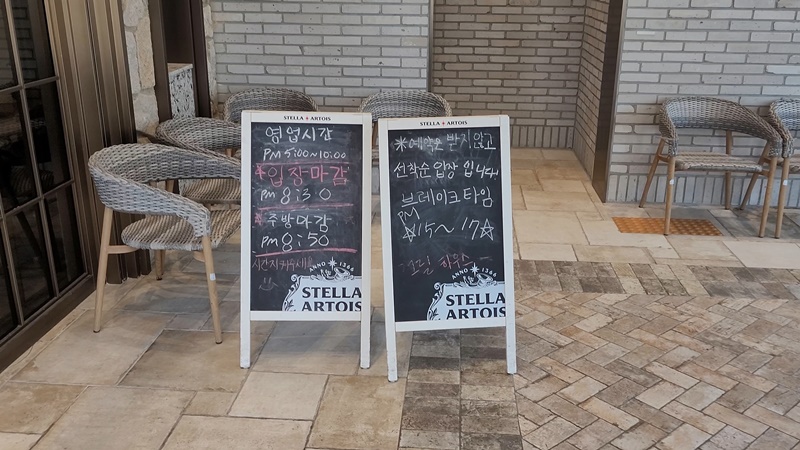 STELLA ARTOIS
영업시간
PM 5:00~10:00
*입장마감
PM 8:30
*주방마감
PM 8:50
시간지켜주세요
ANNO 1366
STELLA
ARTOIS
STELLA ARTOIS
*예약은 받지않고
선착순 입장 입니다!
브레이크타임
PM
☆15~17☆
-그릴 하우스-
ANNO 1366
STELLA
ARTOIS